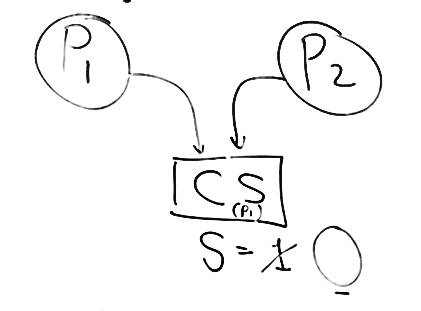 P1 P2
CS
(P1)
S = 1 0